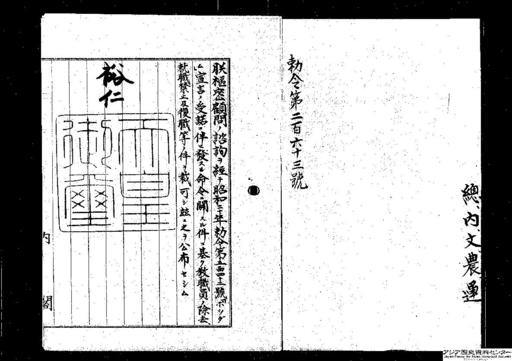 總、内、文、農、運
勅令第二百六十三號
朕樞密顧問ノ諮詢ヲ經テ昭和二十年勅令第五百四十二號ポツダ
ム宣言ノ受諾ニ伴ヒ發スル命令ニ關スル件ニ基ク教職員ノ除去
就職禁止及復職等ノ件ヲ裁可シ茲ニ之ヲ公布セシム
裕仁
天皇
御璽
内閣
アジア歴史資料センター